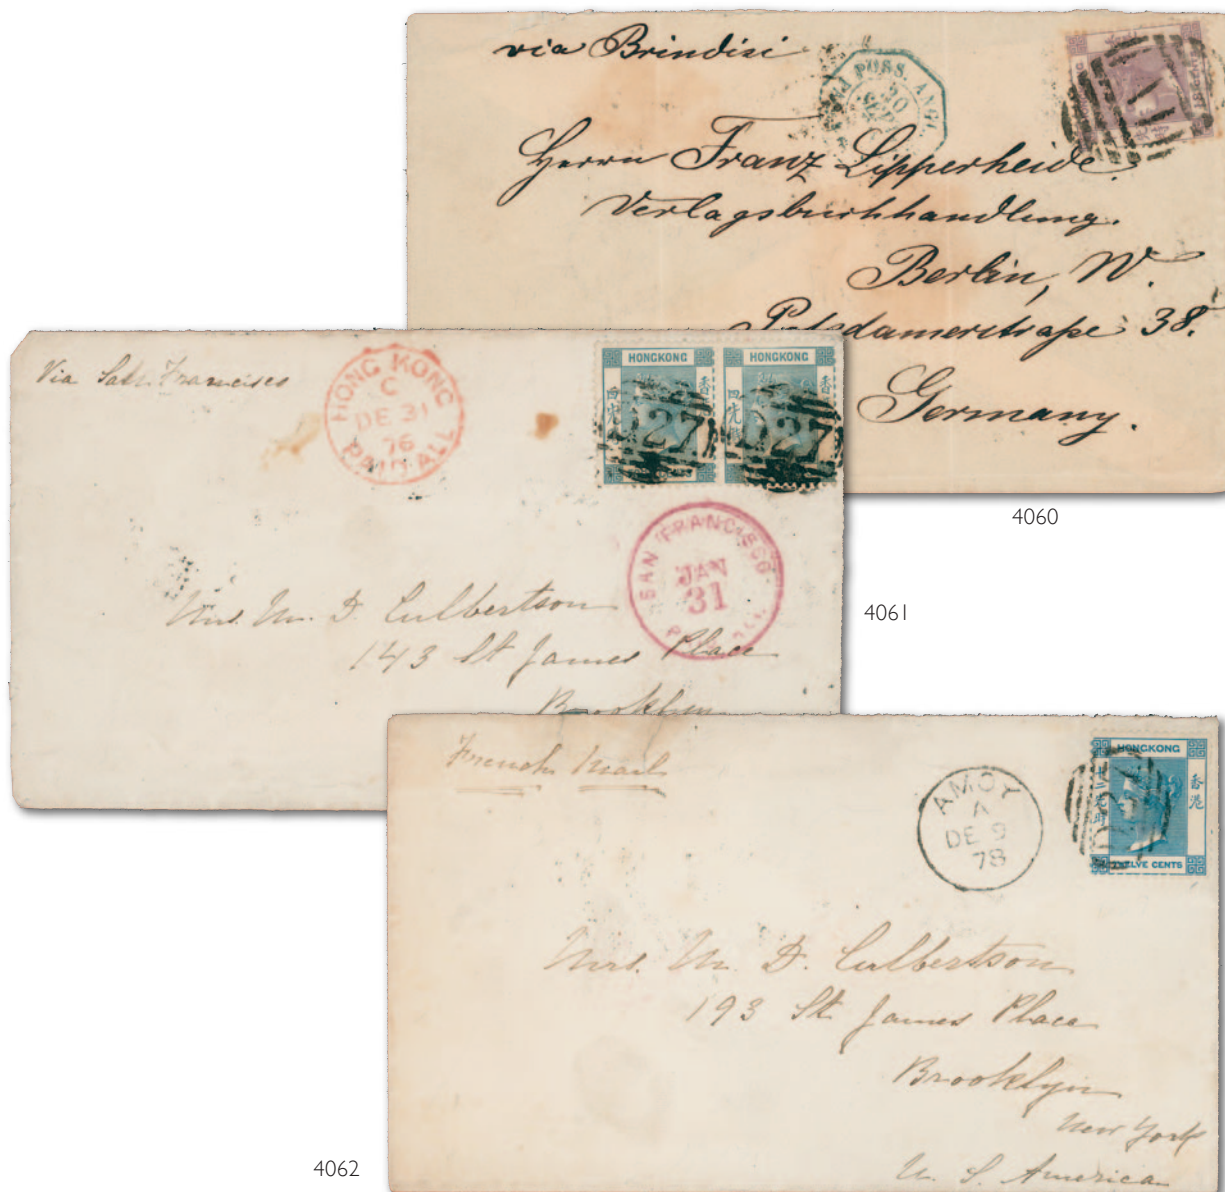 via Brindisi
POSS. ANGL.
30
SEP
Herrn Franz Lipperheide
Verlagsbuchhandlung.
Berlin, W.
Potsdamerstraße 38.
Germany.
4060
Via San Francisco
HONG KONG
C
DE 31
76
PAID ALL
HONGKONG
四先時
香
D27
HONGKONG
四先時
香
D27
SAN FRANCISCO
JAN
31
PAID ALL
Mrs. M. D. Culbertson
143 St James Place
Brooklyn
4061
French Mail
AMOY
A
DE 9
78
HONGKONG
十二先時
香港
TWELVE CENTS
Mrs. M. D. Culbertson
193 St James Place
Brooklyn
New York
U. S. America
4062